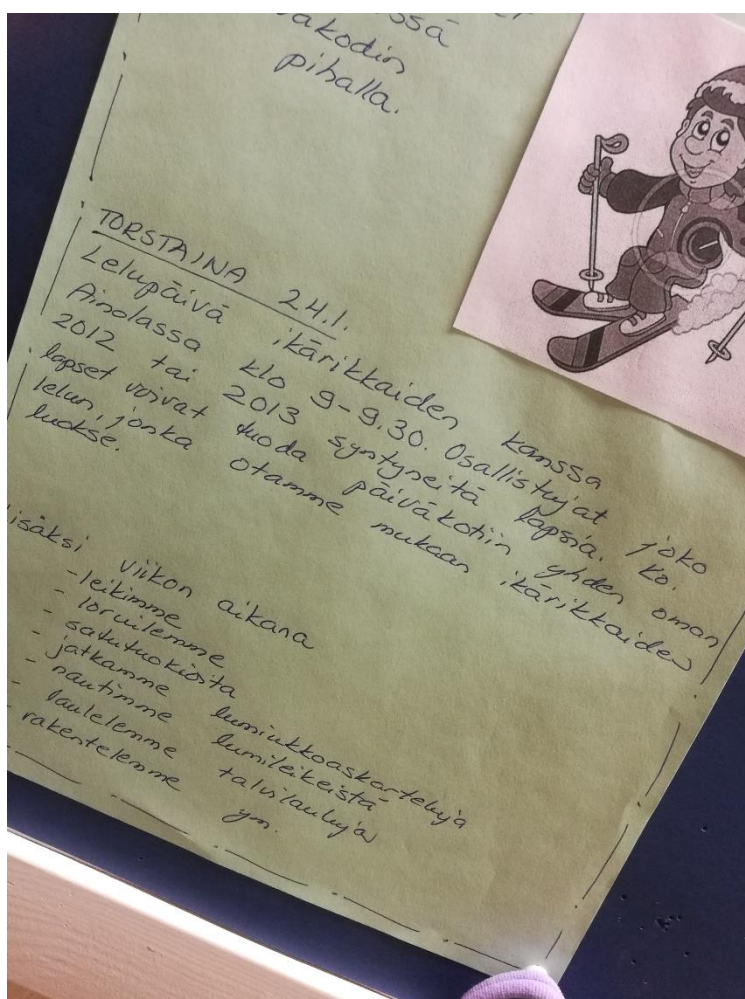 ssä
akodin
pihalla.
TORSTAINA 24.1.
Lelupäivä ikärikkaiden kanssa
Ainolassa klo 9-9.30. Osallistujat joko
2012 tai 2013 syntyneitä lapsia. Ko.
lapset voivat tuoda päiväkotiin yhden oman
lelun, jonka otamme mukaan ikärikkaiden
luokse.
isäksi viikon aikana
- leikimme
- loruilemme
- satutuokioita
- jatkamme lumiukkoaskarteluja
- nautimme lumileikeistä
- laulelemme talvilauluja
- rakentelemme ym.